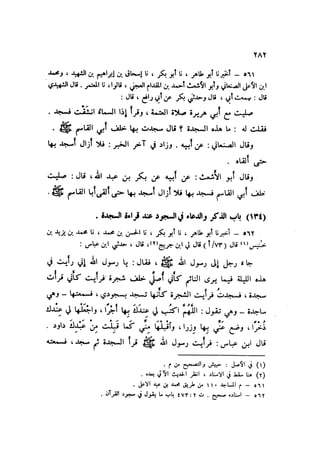 ٢٨٢
٥٦١ - أخبرنا أبو طاهر ، نا أبو بكر ، نا إسحاق بن إبراهيم بن الشهيد ، ومحمد
بن الأعلى الصنعاني وأبو الأشعث أحمد بن المقدام العجلي ، قالوا ، نا المعتمر . قال الشهيدي
قال : سمعت أبي ، قال وحدثني بكر عن أبي رافع ، قال :
صليت مع أبي هريرة صلاة العتمة ، وقرأ إذا السماء انشقت فسجد .
فقلت له : ما هذه السجدة ؟ قال سجدت بها خلف أبي القاسم ﷺ .
وقال الصنعاني : عن أبيه . وزاد في آخر الخبر : فلا أزال أسجد بها
حتى ألقاه .
وقال أبو الأشعث : عن أبيه عن بكر بن عبد الله ، قال : صليت
خلف أبي القاسم فسجد بها فلا أزال أسجد بها حتى ألقى أبا القاسم ﷺ .
(١٣٤) باب الذكر والدعاء في السجود عند قراءة السجدة .
٥٦٢ - أخبرنا أبو طاهر ، نا أبو بكر ، نا الحسن بن محمد ، نا محمد بن يزيد بن
خنيس(١) قال (٧٣/أ) قال لي ابن جريج(٢) قال ، حدثني ، ابن عباس :
جاء رجل إلى رسول الله ﷺ ، فقال : يا رسول الله إني رأيت في
هذه الليلة فيما يرى النائم كأني أصلي خلف شجرة فرأيت كأني قرأت
سجدة ، فسجدت فرأيت الشجرة كأنها تسجد بسجودي ، فسمعتها - وهي
ساجدة - وهي تقول : اللهم اكتب لي عندك بها أجرا ، واجعلها لي عندك
ذخرا ، وضع عني بها وزرا ، واقبلها مني كما قبلت من عبدك داود .
قال ابن عباس : فرأيت رسول الله ﷺ قرأ السجدة ثم سجد ، فسمعته
(١) في الأصل : حبيش والتصحيح من م .
(٢) هنا سقط في الاسناد ، انظر الحديث الآتي بعده .
٥٦١ - م المساجد ١١٠ من طريق محمد بن عبد الأعلى .
٥٦٢ - اسناده صحيح . ت ٢ : ٤٧٣ باب ما يقول في سجود القرآن .